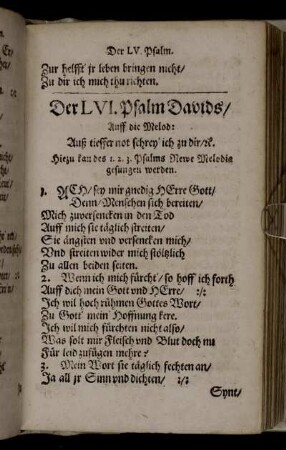 Der LV. Psalm.
Zur helfft jr leben bringen nicht/
Zu dir ich mich thu richten.
Der LVI. Psalm Davids/
Auff die Melod:
Auß tieffer not schrey ich zu dir/ꝛc.
Hiezu kan des 1. 2. 3. Psalms Newe Melodia
gesungen werden.
1. ACH/sey mir gnedig HErre Gott/
Denn/Menschen sich bereiten/
Mich zuversencken in den Tod
Auff mich sie täglich streiten/
Sie ängsten und versencken mich/
Und streiten wider mich stöltzlich
Zu allen beiden seiten.
2. Wenn ich mich fürcht/ so hoff ich forth
Auff dich mein Gott und HErre/ :/:
Ich wil hoch rühmen Gottes Wort/
Zu Gott mein Hoffnung kere.
Ich wil mich fürchten nicht also/
Was solt mir Fleisch und Blut doch nu
Für leid zufügen mehre?
3. Mein Wort sie täglich fechten an/
Ja all jr Sinn und dichten/ :/:
Synt/